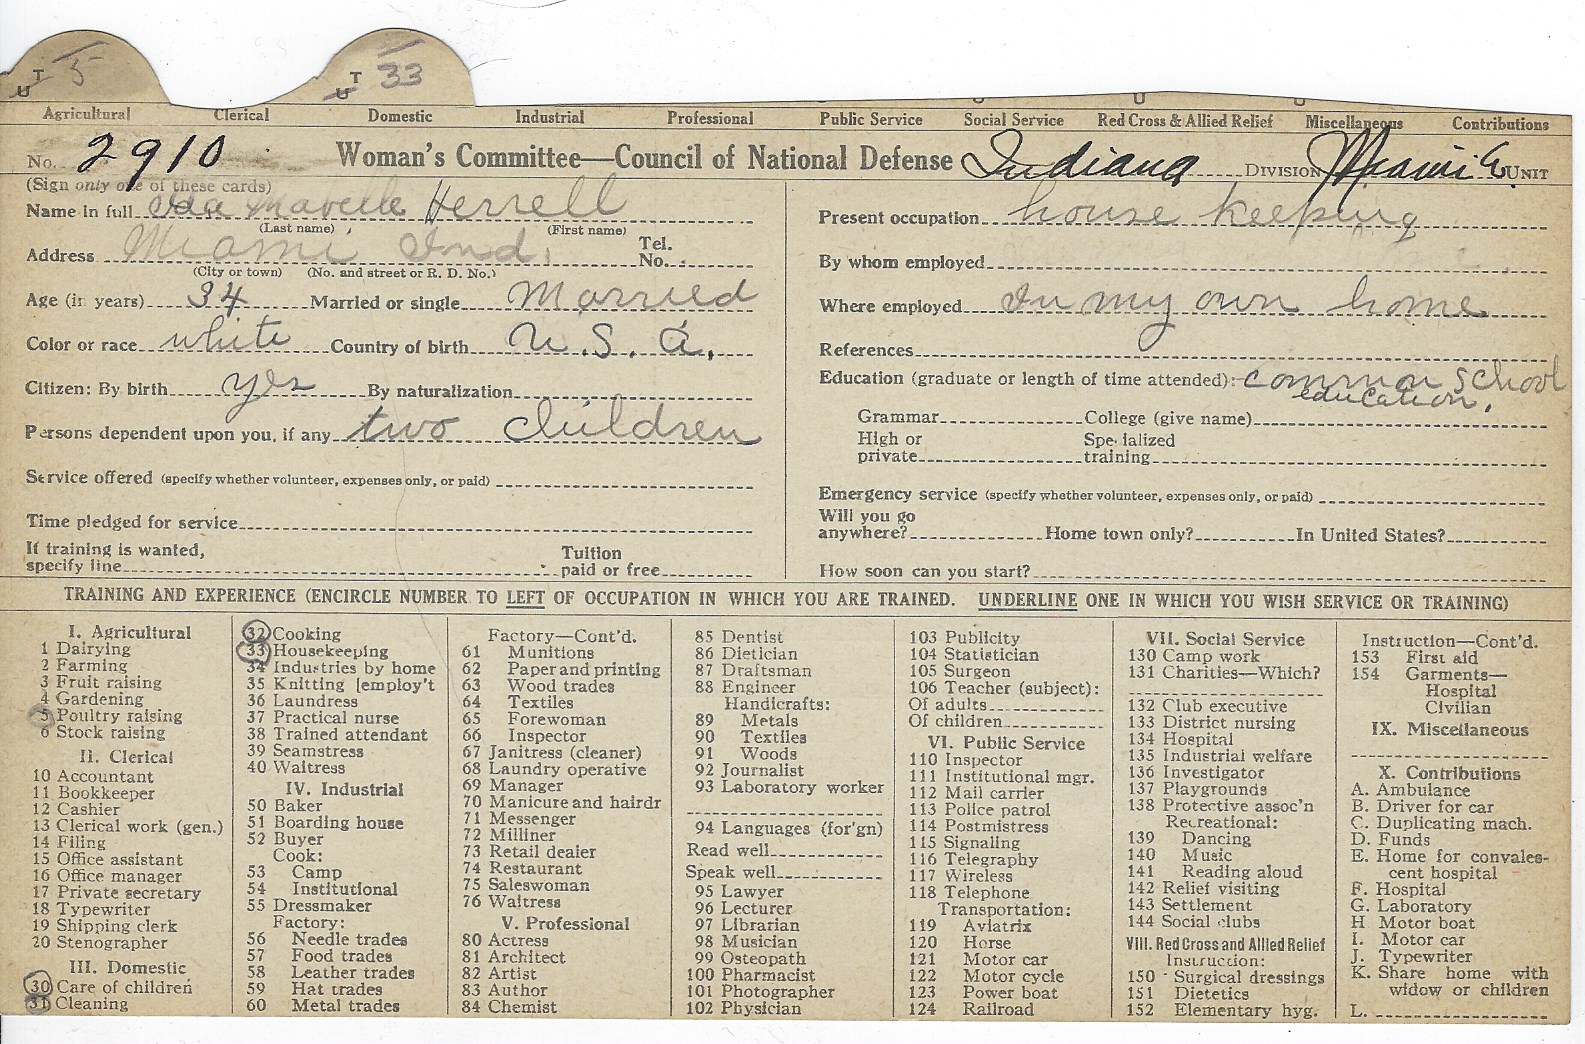 T U 5 T U 33
Agricultural Clerical Domestic Industrial Professional Public Service Social Service Red Cross & Allied Relief Miscellaneous Contributions
No. 2910 Woman's Committee—Council of National Defense Indiana DIVISION Miami Co. UNIT
(Sign only one of these cards)
Name in full Herrell
(Last name) (First name)
Address Miami Ind. Tel. No.
(City or town) (No. and street or R. D. No.)
Age (in years) 34 Married or single Married
Color or race white Country of birth U.S.A.
Citizen: By birth yes By naturalization
Persons dependent upon you, if any two children
Service offered (specify whether volunteer, expenses only, or paid)
Time pledged for service
If training is wanted, specify line Tuition paid or free
Present occupation house keeping
By whom employed
Where employed In my own home
References
Education (graduate or length of time attended): common school
education.
Grammar College (give name)
High or private Specialized training
Emergency service (specify whether volunteer, expenses only, or paid)
Will you go anywhere? Home town only? In United States?
How soon can you start?
TRAINING AND EXPERIENCE (ENCIRCLE NUMBER TO LEFT OF OCCUPATION IN WHICH YOU ARE TRAINED. UNDERLINE ONE IN WHICH YOU WISH SERVICE OR TRAINING)
I. Agricultural
1 Dairying
2 Farming
3 Fruit raising
4 Gardening
5 Poultry raising
6 Stock raising
II. Clerical
10 Accountant
11 Bookkeeper
12 Cashier
13 Clerical work (gen.)
14 Filing
15 Office assistant
16 Office manager
17 Private secretary
18 Typewriter
19 Shipping clerk
20 Stenographer
III. Domestic
30 Care of children
31 Cleaning
32 Cooking
33 Housekeeping
34 Industries by home
35 Knitting [employ't
36 Laundress
37 Practical nurse
38 Trained attendant
39 Seamstress
40 Waitress
IV. Industrial
50 Baker
51 Boarding house
52 Buyer
Cook:
53 Camp
54 Institutional
55 Dressmaker
Factory:
56 Needle trades
57 Food trades
58 Leather trades
59 Hat trades
60 Metal trades
Factory—Cont'd.
61 Munitions
62 Paper and printing
63 Wood trades
64 Textiles
65 Forewoman
66 Inspector
67 Janitress (cleaner)
68 Laundry operative
69 Manager
70 Manicure and hairdr
71 Messenger
72 Milliner
73 Retail dealer
74 Restaurant
75 Saleswoman
76 Waitress
V. Professional
80 Actress
81 Architect
82 Artist
83 Author
84 Chemist
85 Dentist
86 Dietician
87 Draftsman
88 Engineer
Handicrafts:
89 Metals
90 Textiles
91 Woods
92 Journalist
93 Laboratory worker
94 Languages (for'gn)
Read well
Speak well
95 Lawyer
96 Lecturer
97 Librarian
98 Musician
99 Osteopath
100 Pharmacist
101 Photographer
102 Physician
103 Publicity
104 Statistician
105 Surgeon
106 Teacher (subject):
Of adults
Of children
VI. Public Service
110 Inspector
111 Institutional mgr.
112 Mail carrier
113 Police patrol
114 Postmistress
115 Signaling
116 Telegraphy
117 Wireless
118 Telephone
Transportation:
119 Aviatrix
120 Horse
121 Motor car
122 Motor cycle
123 Power boat
124 Railroad
VII. Social Service
130 Camp work
131 Charities—Which?
132 Club executive
133 District nursing
134 Hospital
135 Industrial welfare
136 Investigator
137 Playgrounds
138 Protective assoc'n
Recreational:
139 Dancing
140 Music
141 Reading aloud
142 Relief visiting
143 Settlement
144 Social clubs
VIII. Red Cross and Allied Relief
Instruction:
150 Surgical dressings
151 Dietetics
152 Elementary hyg.
Instruction—Cont'd.
153 First aid
154 Garments—
Hospital
Civilian
IX. Miscellaneous
X. Contributions
A. Ambulance
B. Driver for car
C. Duplicating mach.
D. Funds
E. Home for convales-
cent hospital
F. Hospital
G. Laboratory
H Motor boat
I. Motor car
J. Typewriter
K. Share home with
widow or children
L.